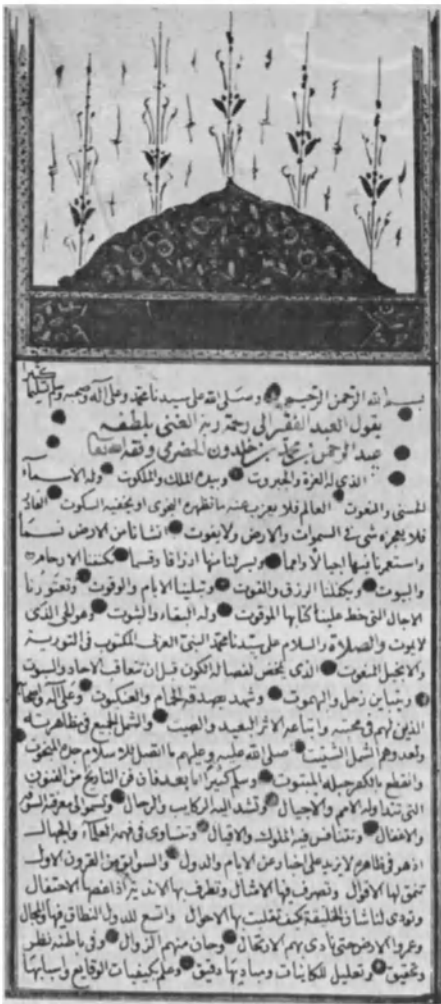 بسم الله الرحمن الرحيم وصلى الله على سيدنا محمد وعلى آله وصحبه وسلم تسليما كثيرا
يقول العبد الفقير الى رحمة ربه الغني بلطفه
عبد الرحمن بن محمد بن خلدون الحضرمي وفقه الله تعالى
الذي له العزة والجبروت وبيده الملك والملكوت وله الاسماء
الحسنى والنعوت العالم فلا يعزب عنه ما تظهره النجوى او يخفيه السكوت القادر
فلا يعجزه شي في السموات والارض ولا يفوت انشانا من الارض نسما
واستعمرنا فيها اجيالا وامما ويسر لنا منها ارزاقا وقسما تكنفنا الارحام
والبيوت ويكفلنا الرزق والقوت وتبلينا الايام والوقوت وتعتورنا
الاجال التي خط علينا كتابها الموقوت وله البقاء والثبوت وهو الحي الذي
لا يموت والصلاة والسلام على سيدنا محمد النبي العربي المكتوب في التورية
والانجيل المنعوت الذي تمخض لفصاله الكون قبل ان تتعاقب الاحاد والسبوت
ويتباين زحل واليهموت وشهد بصدقه الحمام والعنكبوت وعلى آله واصحابه
الذين لهم في محبته واتباعه الاثر البعيد والصيت والشمل الجميع في مظاهرته
ولعدوهم الشمل الشتيت صلى الله عليه وعليهم ما اتصل للاسلام جده المبخوت
وانقطع بالكفر حبله المبتوت وسلم كثيرا اما بعد فان فن التاريخ من الفنون
التي تتداوله الامم والاجيال وتشد اليه الركايب والرحال وتسمو الى معرفته السوقة
والاغفال وتتنافس فيه الملوك والاقيال وتتساوى في فهمه العلماء والجهال
اذ هو في ظاهره لا يزيد على اخبار عن الايام والدول والسوابق من القرون الاول
تنمق لها الاقوال وتصرف فيها الامثال وتطرف بها الاندية اذا غصها الاحتفال
وتودي لنا شان الخليقة كيف تقلبت بها الاحوال واتسع للدول النطاق فيها والمجال
وعمروا الارض حتى نادى بهم الارتحال وحان منهم الزوال وفي باطنه نظر
وتحقيق وتعليل للكاينات ومباديها دقيق وعلم بكيفيات الوقايع واسبابها